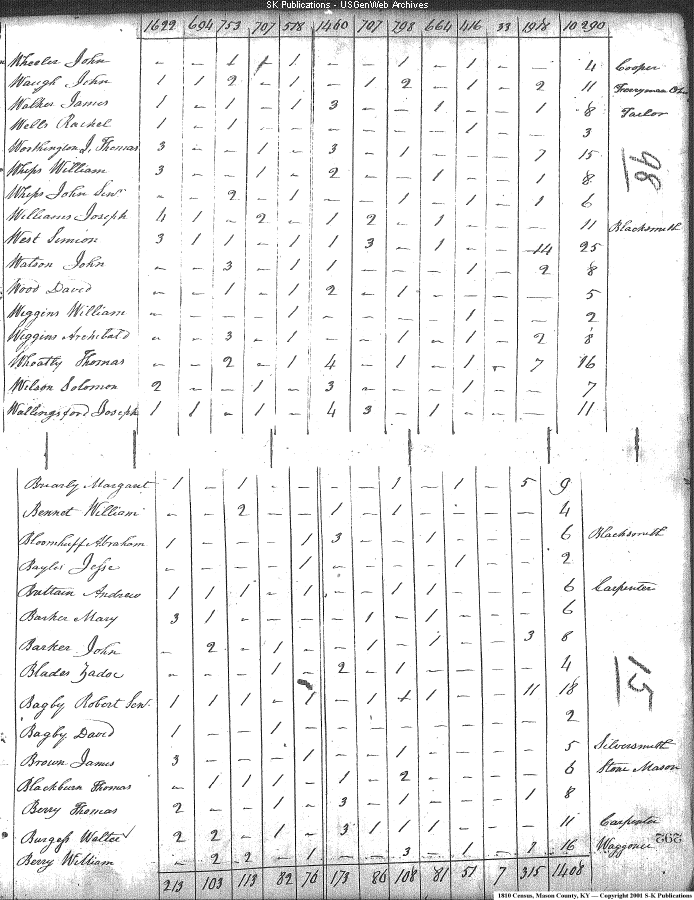 SK Publications - USGenWeb Archives
1622 694 753 707 578 1460 707 798 664 416 33 1918 10290
Wheeler John - - 1 1 1 - - 1 - 1 - - 4 Cooper
Waugh John 1 1 2 - 1 - 1 2 - 1 - 2 11 Ferryman
Walker James 1 - 1 - 1 3 - - 1 - - 1 8 Tailor
Wells Rachel 1 - 1 - - - - - - 1 - - 3
Worthington J. Thomas 3 - - 1 - 3 - 1 - - - 7 15
Wheps William 3 - - 1 - 2 - - 1 - - 1 8
98
Wheps John Senr - - 2 - 1 - - 1 - 1 - 1 6
Williams Joseph 4 1 - 2 - 1 2 - 1 - - - 11 Blacksmith
West Simeon 3 1 1 - 1 1 3 - 1 - - 14 25
Watson John - - 3 - 1 1 - - - 1 - 2 8
Wood David - - 1 - 1 2 - 1 - - - - 5
Wiggins William - - - - 1 - - - - 1 - - 2
Wiggins Archibald - - 3 - 1 - - 1 - 1 - 2 8
Wheatly Thomas - - 2 - 1 4 - 1 - 1 - 7 16
Wilson Solomon 2 - - 1 - 3 - - - 1 - - 7
Wallingsford Joseph 1 1 - 1 - 4 3 - 1 - - - 11
Brearly Margaret 1 - 1 - - - - 1 - 1 - 5 9
Bennet William - - 2 - - 1 - 1 - - - - 4
Bloomhuff Abraham 1 - - - 1 3 - - 1 - - - 6 Blacksmith
Bayles Jesse - - - - 1 - - - - 1 - - 2
Brittain Andrew 1 1 1 - 1 - - 1 1 - - - 6 Carpenter
Barker Mary 3 1 - - - - 1 - 1 - - - 6
Barker John - 2 - 1 - - 1 - 1 - - 3 8
Blades Zadoc - - - 1 - 2 - 1 - - - - 4
15
Bagby Robert Senr 1 1 1 - 1 - - 1 1 - - 11 18
Bagby David 1 - - 1 - - - - - - - - 2
Brown James 3 - - - 1 - - 1 - - - - 5 Silversmith
Blackburn Thomas - 1 1 1 - 1 - 2 - - - - 6 Stone Mason
Berry Thomas 2 - - 1 - 3 - 1 - - - 1 8
Burgess Walter 2 2 - 1 - 3 1 1 1 - - - 11 Carpenter
292
Berry William - 2 2 - 1 - - 3 - 1 - 7 16 Waggoner
213 103 113 82 76 173 86 108 81 51 7 315 1408
1810 Census, Mason County, KY — Copyright 2001 S-K Publications